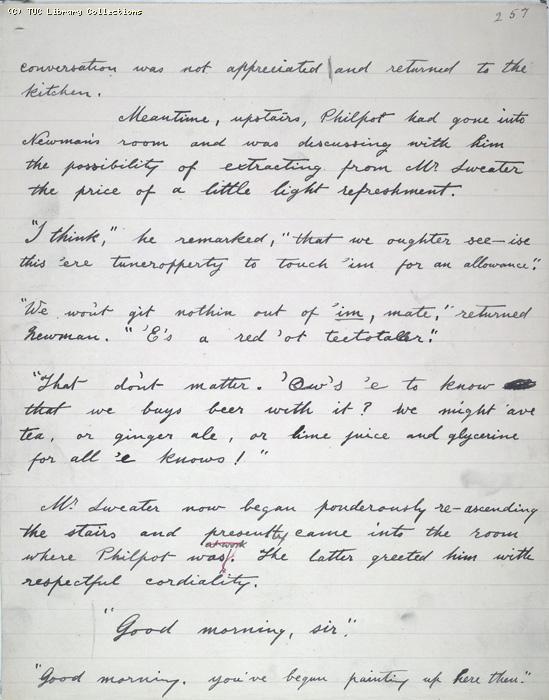 (C) TUC Library Collections
257
conversation was not appreciated and returned to the
kitchen.
Meantime, upstairs, Philpot had gone into
Newman's room and was discussing with him
the possibility of extracting from Mr Sweater
the price of a little light refreshment.
"I think," he remarked, "that we oughter see-ise
this 'ere tuneropperty to touch 'im for an allowance".
"We won't git nothin out of 'im, mate," returned
Newman. "'E's a red 'ot teetotaller".
"That don't matter. 'Ow's 'e to know
that we buys beer with it? We might 'ave
tea, or ginger ale, or lime juice and glycerine
for all 'e knows!"
Mr Sweater now began ponderously re-ascending
the stairs and presently came into the room
at work
where Philpot was. The latter greeted him with
respectful cordiality.
"Good morning, sir".
"Good morning. You've begun painting up here then".